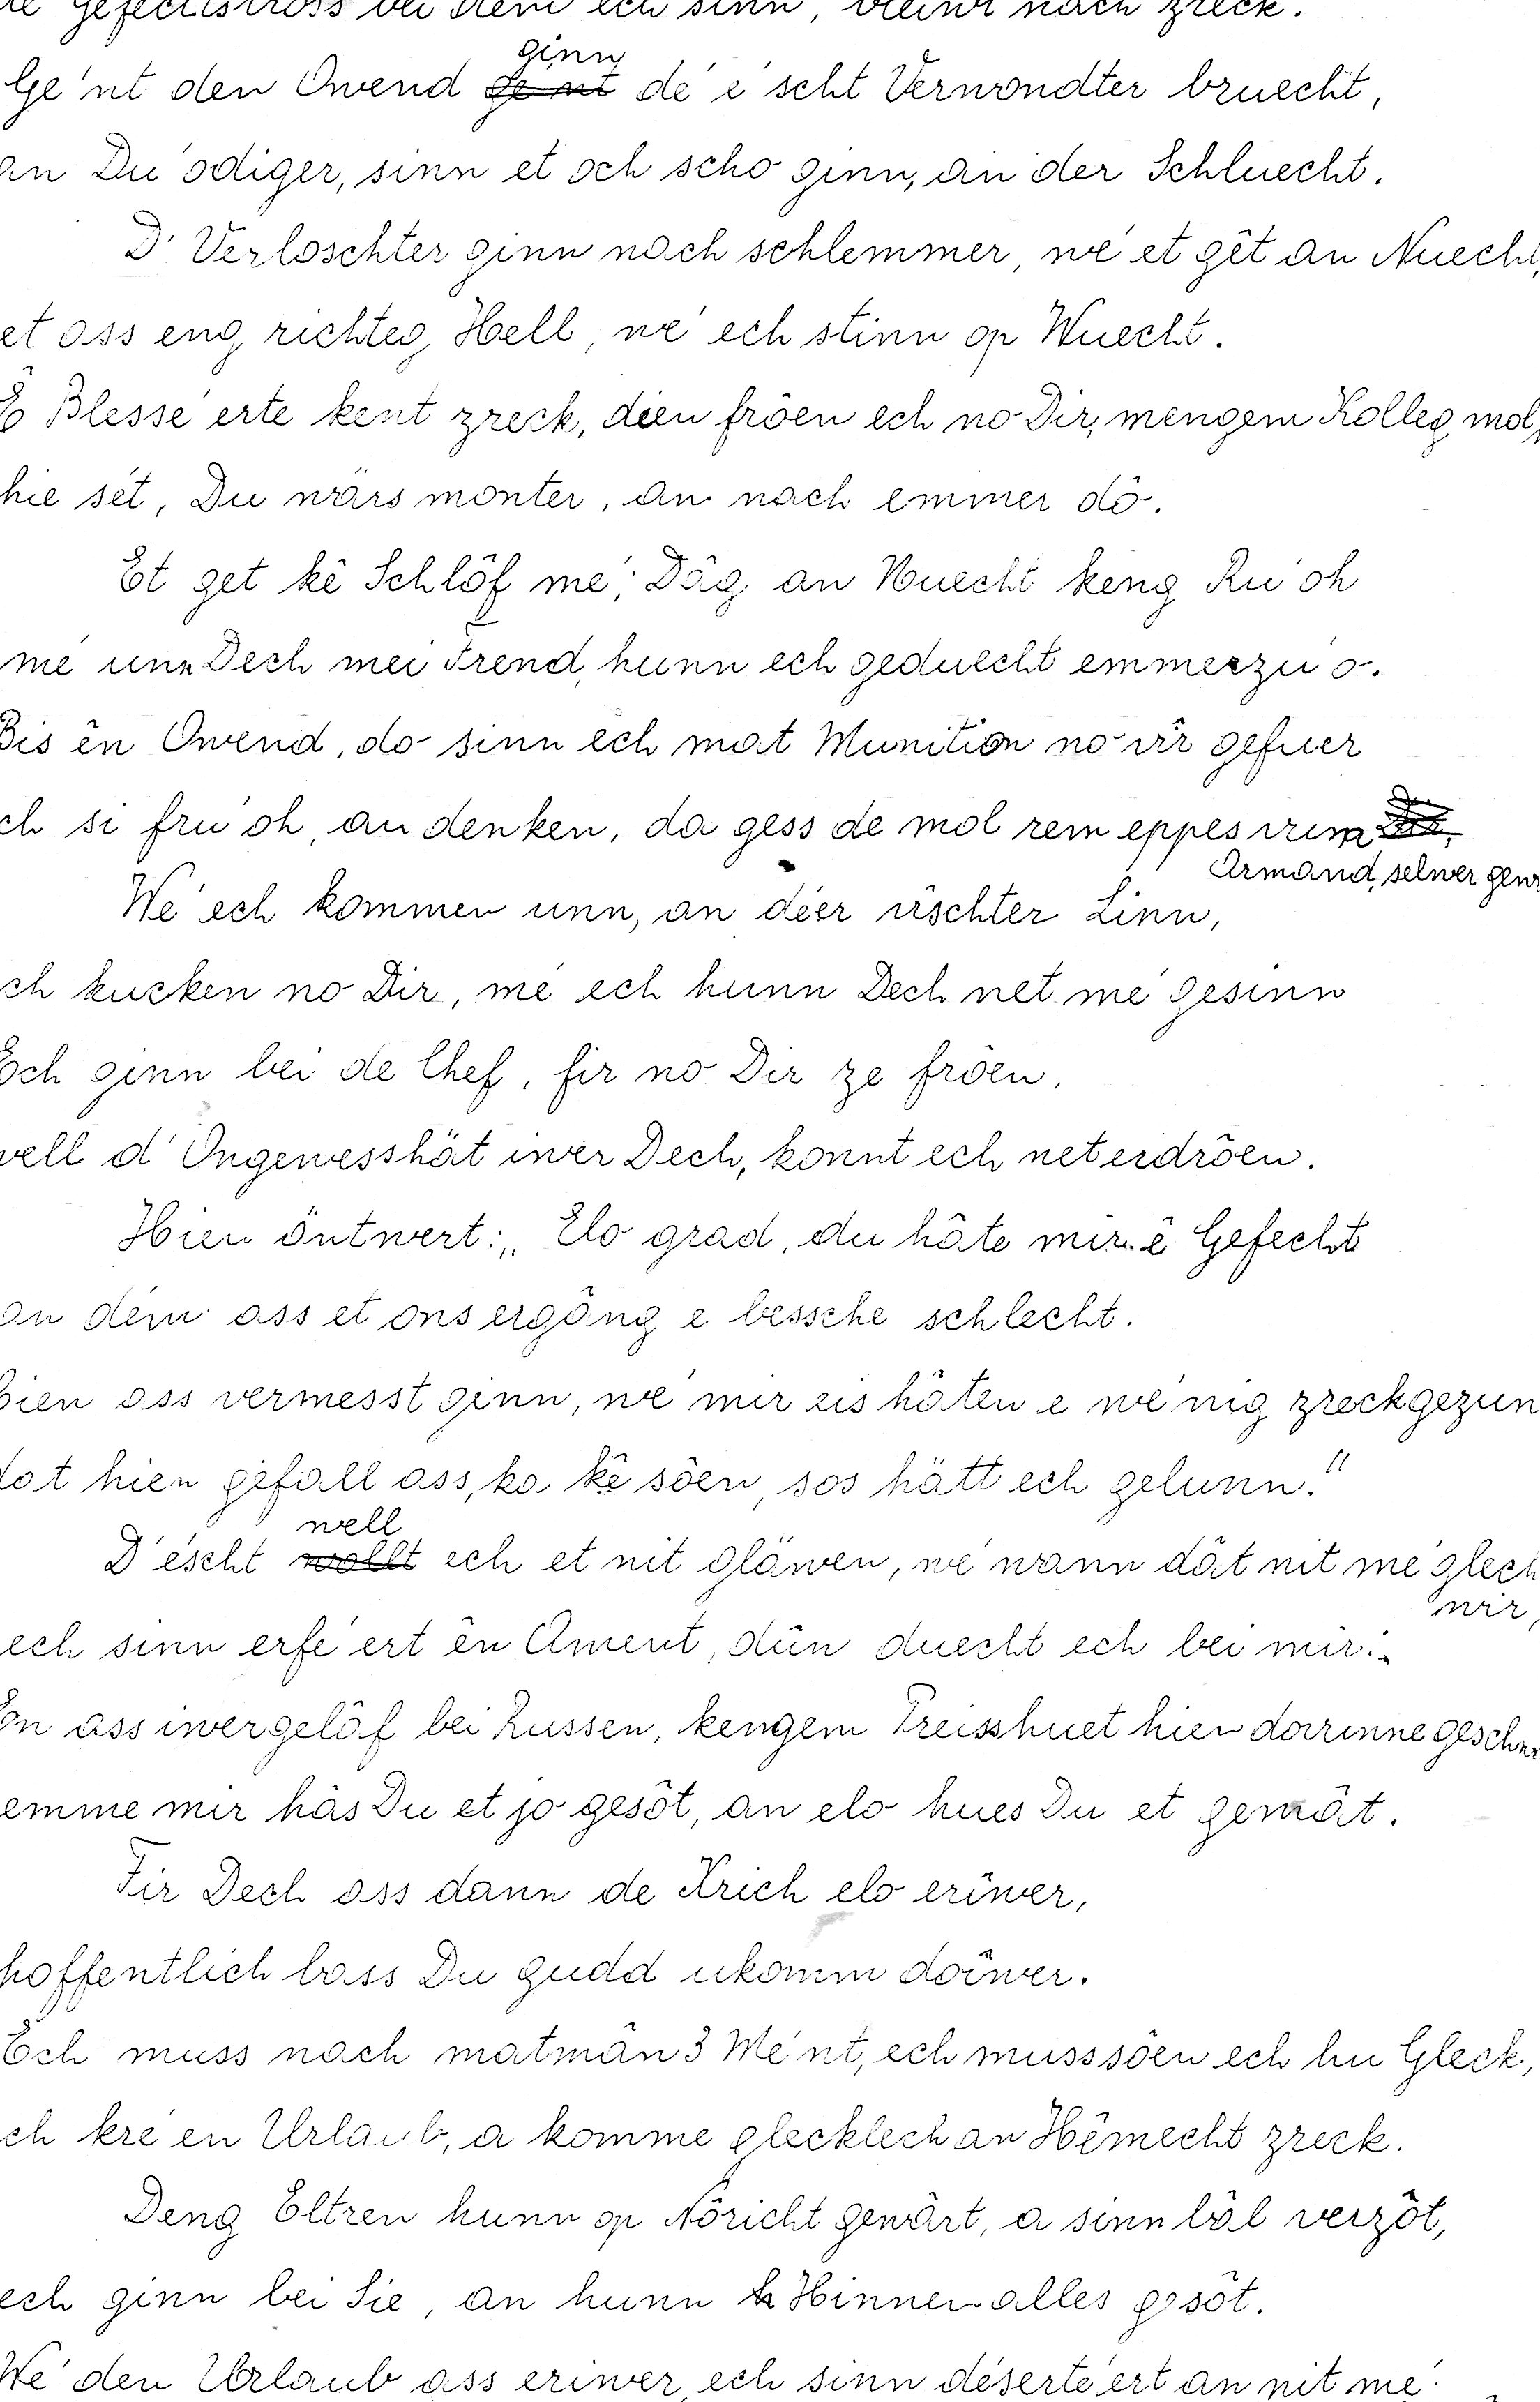 Gefechtstross bei dem ech sinn, bleiwt nach zreck.
Ge'nt den Owend ginn de' e'scht Verwondter bruecht,
an Du'odiger, sinn et och scho ginn, an der Schluecht.
D'Verloschter ginn nach schlemmer, we' et gêt an Nuecht,
et ass eng richteg Hell, we' ech stinn op Wuecht.
E Blesse'erte kent zreck, dien frôen ech no Dir, mengem Kolleg mol,
hie sét, Du wärs monter, an nach emmer dô.
Et get kê Schlôf me', Dâg an Nuecht keng Ru'oh
me' unn Dech mei Frend, hunn ech geduecht emmerzu'o.
Bis ên Owend, do sinn ech mat Munition no vîr gefuer
ch si fru'oh, an denken, da gess de mol rem eppes vum
Armand, selwer gewu
We' ech kommen unn, an déer vischter Linn,
ch kucken no Dir, me' ech hunn Dech net me' gesinn
Ech ginn bei de Chef, fir no Dir ze frôen,
well d'Ongewesshät iwer Dech, konnt ech net erdrôen.
Hien äntwert: „Elo grad, du hâte mir ê Gefecht
an dém ass et ons ergâng e bessche schlecht.
hien ass vermesst ginn, we' mir eis hâten e we'nig zreckgezun
dat hien gefall ass, ka kê sôen, sos hätt ech gelunn."
D'éscht well ech et nit gläwen, we' wann dât nit me'glech
wir,
ech sinn erfe'ert ên Ament, dün duecht ech bei mir:„
En ass iwergelôf bei Russen, kengem Preisshuet hien dovunne geschw
emme mir hâs Du et jo gesôt, an elo hues Du et gemât.
Fir Dech ass dann de Krich elo eriwer,
hoffentlich bass Du gudd ukomm doîwer.
Ech muss nach matmân 3 Me'nt, ech muss sôen ech hu Gleck,
ch kre'en Urlaub, a komme glecklech an Hêmecht zreck.
Deng Eltren hunn op Nôricht gewârt, a sinn bâl verzôt,
ech ginn bei Sie, an hunn Hinnen alles gesôt.
We' den Urlaub ass eriwer, ech sinn déserte'ert an nit me'